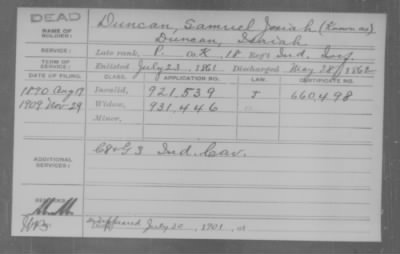 DEAD
NAME OF SOLDIER: Duncan, Samuel Josiah (Known as)
Duncan, Isaiah
SERVICE: Late rank, P. Co. K, 18 Reg't Ind. Inf.
TERM OF SERVICE: Enlisted July 23, 1861 Discharged May 28, 1862
DATE OF FILING. CLASS. APPLICATION NO. LAW. CERTIFICATE NO.
1890 Aug 18 Invalid, 921.539 J 660.498
1909 Nov 29 Widow, 931.446
Minor,
ADDITIONAL SERVICES: C & G 3 Ind. Cav.
REMARKS:
July 20, 1901, at